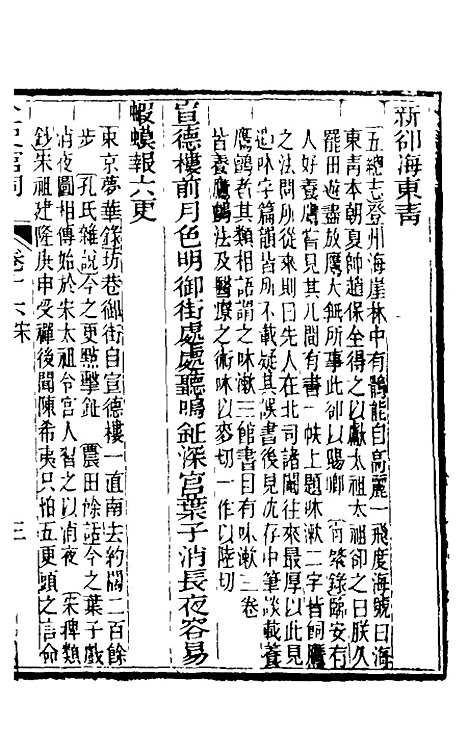 新卻海東青
五總志登州海崖林中有鶻能自高麗一飛度海號曰海
東青本朝夏帥趙保全得之以獻太祖太祖卻之曰朕久
罷田遊盡放鷹犬無所事此卻以賜卿 肯綮錄臨安有
人好養鷹見其几間有書一帙上題咮漱二字皆飼鷹
之法問所從來則曰先人在北司諸閹往來最厚以此見
遺咮字篇韻子所不載疑其誤書後見沈存中筆談載養
鷹鶻者其類相語謂之咮漱三館書目有咮漱三卷
皆養鷹鶻法及醫療之術咮以麥切一作以陸切
宣德樓前月色明御街處處聽鳴鉦深宮葉子消長夜容易
蝦蟆報六更
東京夢華錄坊巷御街自宣德樓一直南去約闊二百餘
步 孔氏雜說今之更點擊鉦 農田餘話今之葉子戲
消夜圖相傳始於宋太祖令宮人習之以消夜 宋稗類
鈔宋祖建隆庚申受禪後聞陳希夷只怕五更頭之言命
宮詞
卷十六宋
三